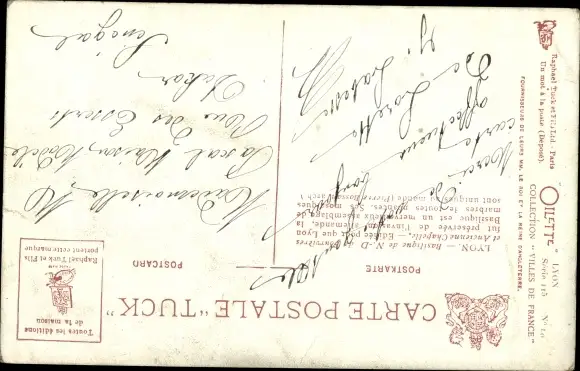 CARTE POSTALE "TUCK"
POSTKARTE
POSTCARD
Toutes les éditions
de la maison
Raphael Tuck et Fils
portent cette marque
LYON. — Basilique de N.-D. de Fourvières
et Ancienne Chapelle. — Édifiée pour que Lyon
fut préservée de l'invasion allemande, la
Basilique est un merveilleux assemblage de
marbres de toutes nuances. Ses mosaïques
sont uniques au monde (Pierre Bossan, arch.)
"OILETTE" LYON
Série 115 No
COLLECTION "VILLES DE FRANCE"
FOURNISSEURS DE LEURS MM. LE ROI ET LA REINE D'ANGLETERRE.
Raphael Tuck et Fils, Ltd. - Paris
Un mot à la poste (Déposé).
Mademoiselle
Pascal Maison Modèle
Rue des Essarts
Dakar
Sénégal
Merci de
carte
affectueux
De Loretto